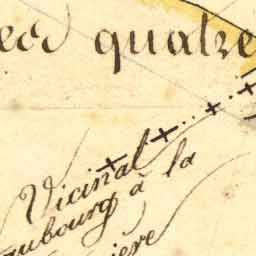 quatre
Vicinal
aubourg à la
ière